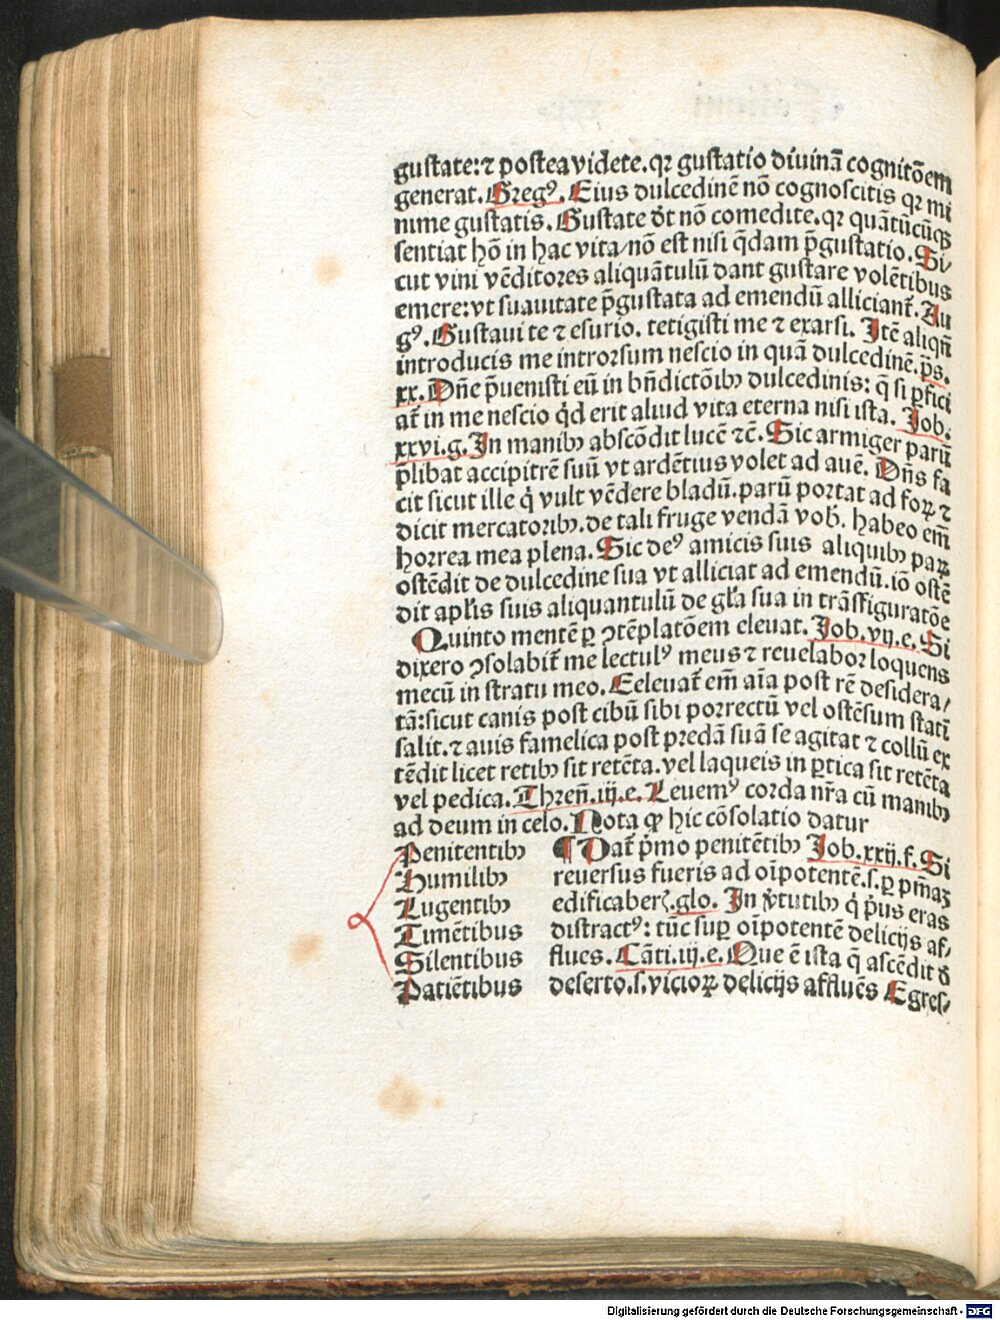 gustate:⁊ postea videte.qꝛ gustatio diuinā cognitōem
generat.Gregꝰ. Eius dulcedinē nō cognoscitis qꝛ mi
nime gustatis. Gustate dt nō comedite.qꝛ quātūcūqꝫ
sentiat hō in hac vita/nō est nisi q̄dam p̄gustatio. Si/
cut vini vēditores aliquātulū dant gustare volētibus
emere:vt suauitate p̄gustata ad emendū alliciant̄. Au
gꝰ. Gustaui te ⁊ esurio. tetigisti me ⁊ exarsi. Itē aliqn̄
introducis me introrsum nescio in quā dulcedinē. p̄s.
xx. Dn̄e p̄uenisti eū in bn̄dictōibꝰ dulcedinis: q̄ si ꝑfici
at̄ in me nescio qd erit aliud vita eterna nisi ista. Job.
xxvi.g. In manibꝰ abscōdit lucē ⁊c̄. Sic armiger parū
p̄libat accipitrē suū vt ardētius volet ad auē. Dn̄s fa
cit sicut ille q̇ vult vēdere bladū.parū portat ad foꝝ ⁊
dicit mercatoribꝰ.de tali fruge vendā vob̄. habeo em̄
horrea mea plena. Sic deꝰ amicis suis aliquibꝰ paꝝ
ostēdit de dulcedine sua vt alliciat ad emendū.iō ostē
dit apl̄is suis aliquantulū de gl̄a sua in trāsfiguratōe
Quinto mentē ꝑ ꝯtēplatōem eleuat. Job.vij.e. Si
dixero ꝯsolabit̄ me lectulꝰ meus ⁊ reuelabor loquens
mecū in stratu meo. Eeleuat̄ em̄ aīa post rē desidera/
tā:sicut canis post cibū sibi porrectū vel ostēsum statī
salit.⁊ auis famelica post predā suā se agitat ⁊ collū ex
tēdit licet retibꝰ sit retēta.vel laqueis in ꝑtica sit retēta
vel pedica. Thren̄.iij.e. Leuemꝰ corda nr̄a cū manibꝰ
ad deum in celo. Nota ꝙ hic cōsolatio datur
Penitentibꝰ
Humilibꝰ
Lugentibꝰ
Timētibus
Silentibus
Patiētibus
¶ Dat̄ p̄mo penitētibꝰ Job.xxij.f. Si
reuersus fueris ad oīpotentē.s.ꝑ pm̄aꝫ
edificaberꝭ.glo. In v̄tutibꝰ q̇ p̄us eras
distractꝰ: tūc suꝑ oīpotentē delicijs af/
flues. Cāti.iij.e. Que ē ista q̄ ascēdit ď
deserto.s.vicioꝝ delicijs affluēs Egres/
Digitalisierung gefördert durch die Deutsche Forschungsgemeinschaft - DFG